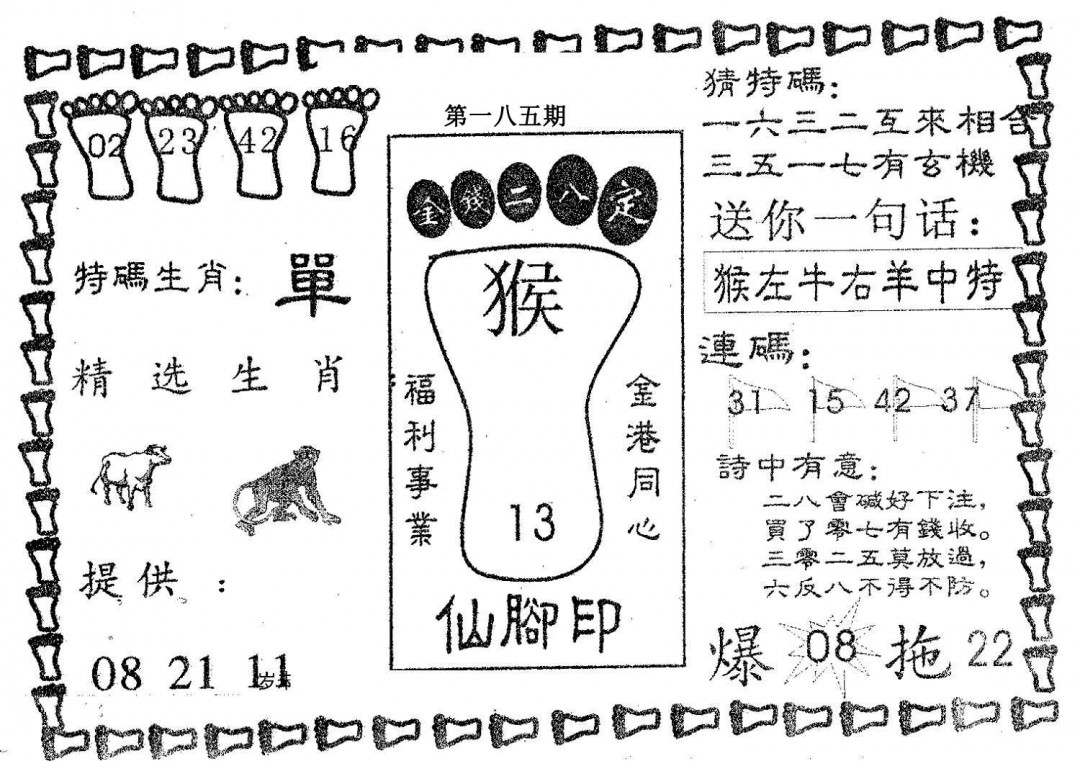 第一八五期
02 23 42 16
特碼生肖：單
精选生肖
提供：
08 21 11
金錢二八定
猴
福利事業
金港同心
13
仙腳印
猜特碼：
一六三二互來相合
三五一七有玄機
送你一句话：
猴左牛右羊中特
連碼：
31 15 42 37
詩中有意：
二八會碱好下注，
買了零七有錢收。
三零二五莫放過，
六反八不得不防。
爆 08 拖 22